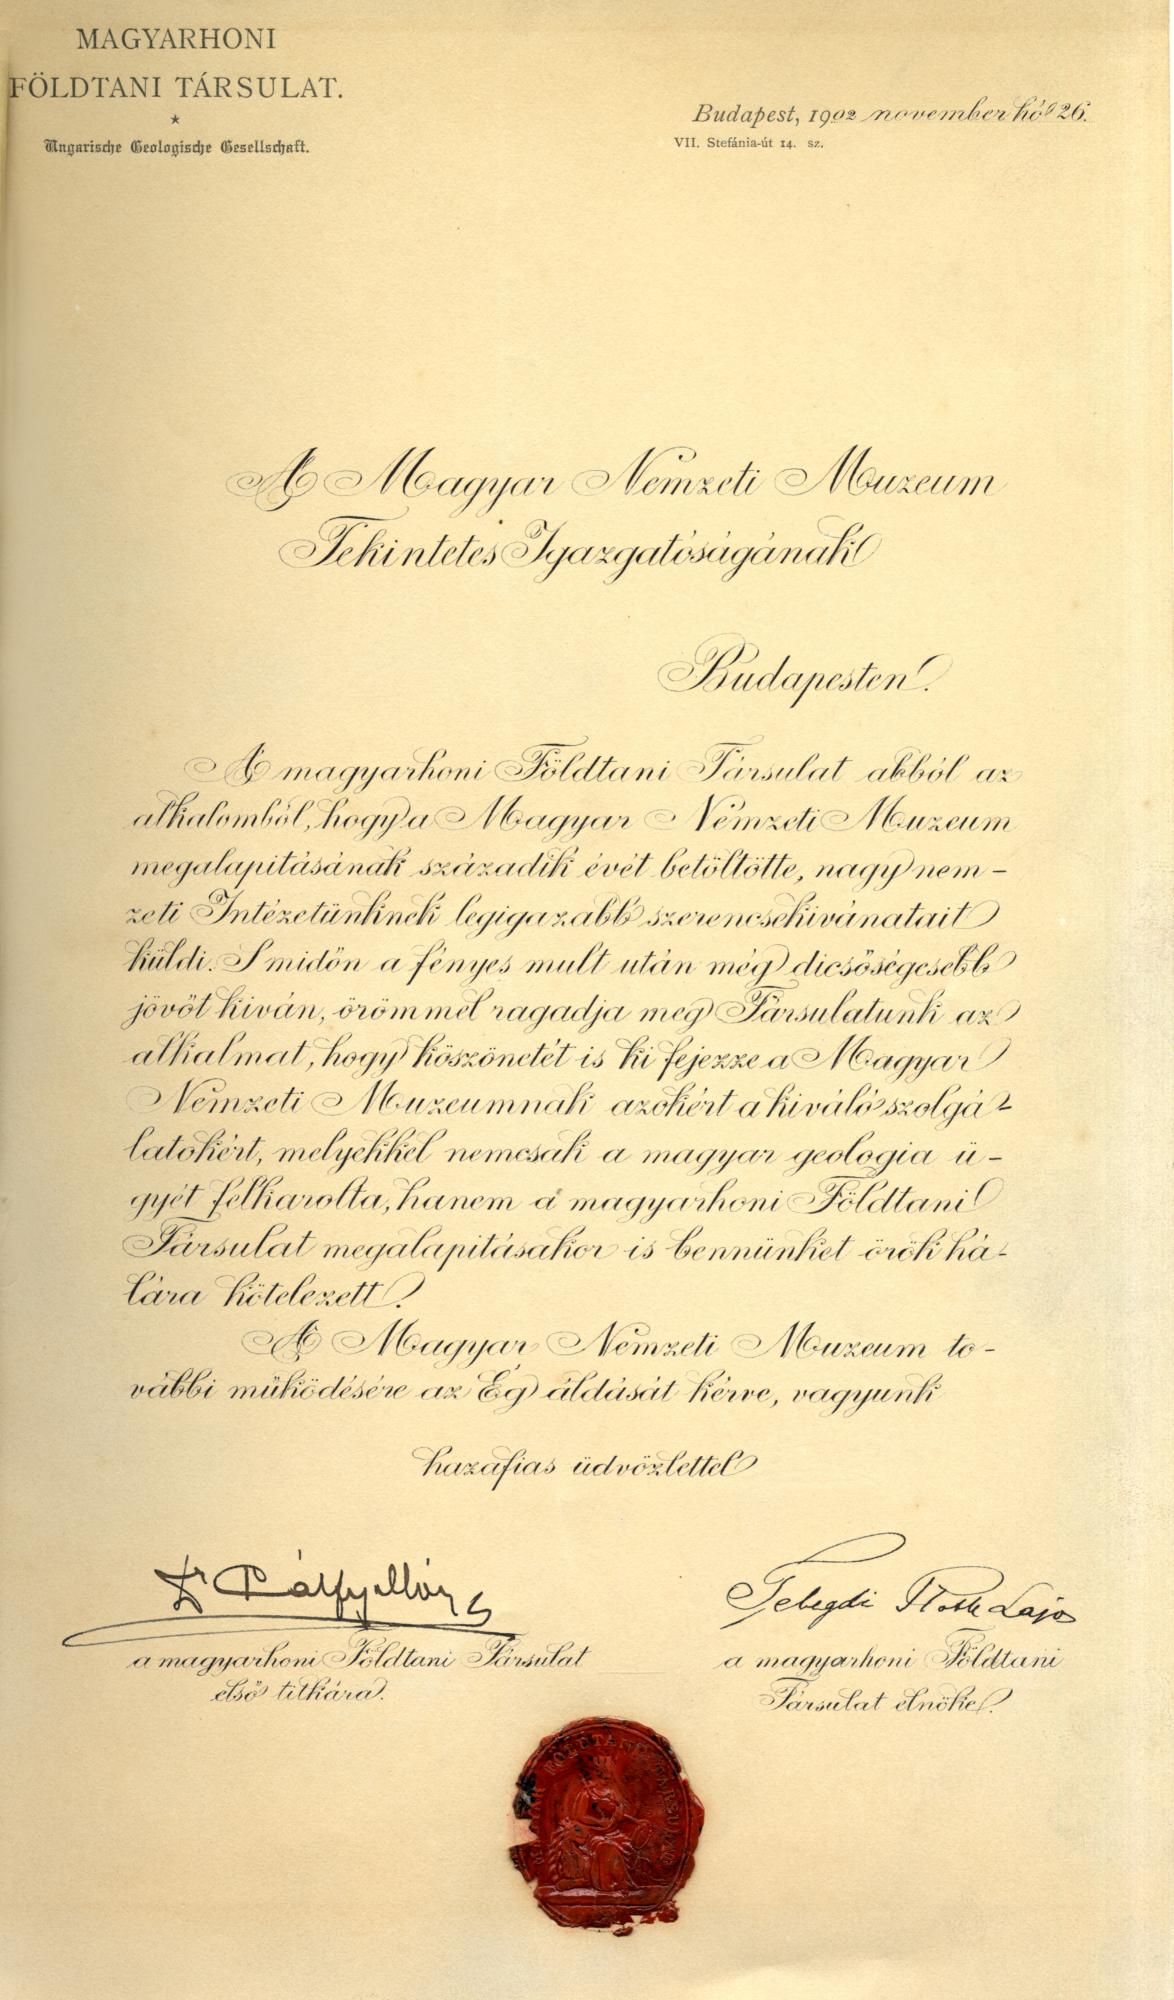 MAGYARHONI
FÖLDTANI TÁRSULAT.
Ungarische Geologische Gesellschaft.
Budapest, 1902 november hó 26.
VII. Stefánia-út 14. sz.
A Magyar Nemzeti Muzeum
Tekintetes Igazgatóságának
Budapesten.
A magyarhoni Földtani Társulat abból az
alkalomból, hogy a Magyar Nemzeti Muzeum
megalapitásának századik évét betöltötte, nagy nem-
zeti Intézetünknek legigazabb szerencsekivánatait
küldi. S midőn a fényes mult után még dicsőségesebb
jövőt kiván, örömmel ragadja meg Társulatunk az
alkalmat, hogy köszönetét is ki fejezze a Magyar
Nemzeti Muzeumnak azokért a kiváló szolgá-
latokért, melyekkel nemcsak a magyar geologia ü-
gyét felkarolta, hanem a magyarhoni Földtani
Társulat megalapitásakor is bennünket örök há-
lára kötelezett.
A Magyar Nemzeti Muzeum to-
vábbi működésére az Ég áldását kérve, vagyunk
hazafias üdvözlettel
Dr Pálfy Mór
a magyarhoni Földtani Társulat
első titkára.
Telegdi Roth Lajos
a magyarhoni Földtani
Társulat elnöke.
FÖLDTANI TÁRSULAT